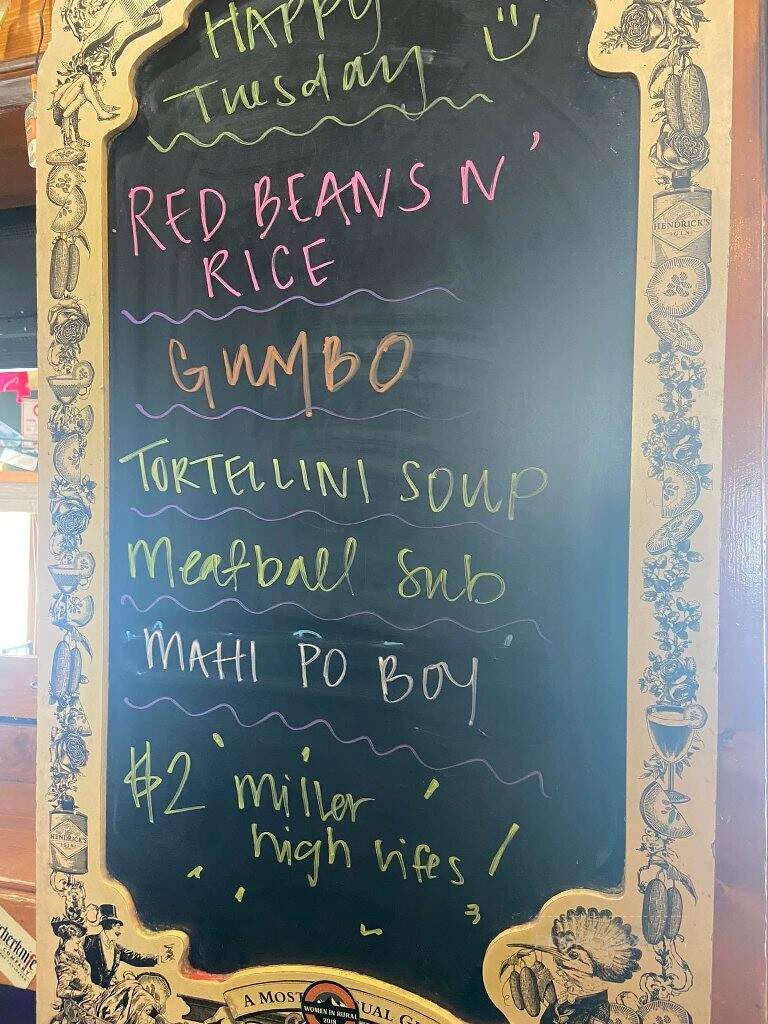 HAPPY
Tuesday
RED BEANS N'
RICE
GUMBO
TORTELLINI SOUP
Meatball Sub
MAHI PO BOY
$2 miller
high lifes!
HENDRICK'S
GIN
HENDRICK'S
GIN
A MOST
WOMEN IN RURAL
2018